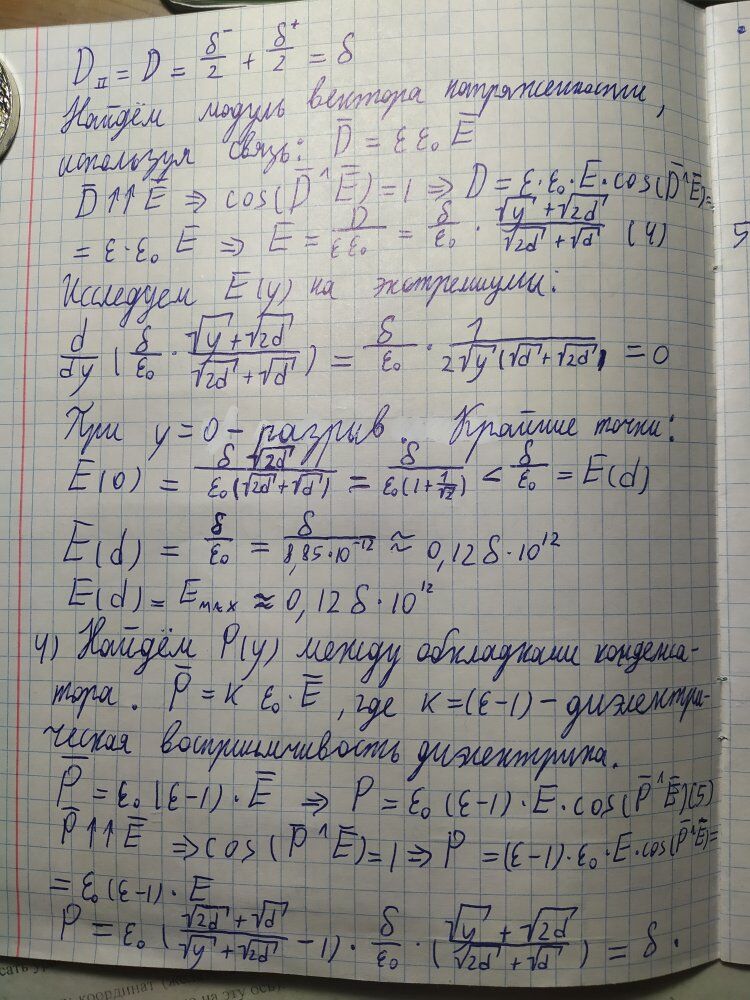 D_II = D = δ⁻/2 + δ⁺/2 = δ
Найдём модуль вектора напряженности,
используя связь: D̅ = ε ε₀ E̅
D̅ ↑↑ E̅ ⇒ cos(D̅^E̅) = 1 ⇒ D = ε·ε₀·E·cos(D̅^E̅) =
= ε·ε₀ E ⇒ E = D/(εε₀) = δ/ε₀ · (√y + √2d)/(√2d + √d) (4)
Исследуем E(y) на экстремумы:
d/dy (δ/ε₀ · (√y + √2d)/(√2d + √d)) = δ/ε₀ · 1/(2√y (√d + √2d)) = 0
При y = 0 – разрыв. Крайние точки:
E(0) = δ√2d/(ε₀(√2d + √d)) = δ/(ε₀(1 + 1/√2)) < δ/ε₀ = E(d)
E(d) = δ/ε₀ = δ/(8,85·10⁻¹²) ≈ 0,12 δ·10¹²
E(d) = E max ≈ 0,12 δ·10¹²
4) Найдём P(y) между обкладками конденса-
тора. P̅ = κ ε₀·E̅, где κ = (ε-1) – диэлектри-
ческая восприимчивость диэлектрика.
P̅ = ε₀ (ε-1)·E̅ ⇒ P = ε₀ (ε-1)·E·cos(P̅^E̅) (5)
P̅ ↑↑ E̅ ⇒ cos(P̅^E̅) = 1 ⇒ P = (ε-1)·ε₀·E·cos(P̅^E̅) =
= ε₀(ε-1)·E
P = ε₀ ((√2d + √d)/(√y + √2d) - 1)· δ/ε₀ · ((√y + √2d)/(√2d + √d)) = δ·
5
координат (же
на эту ось)